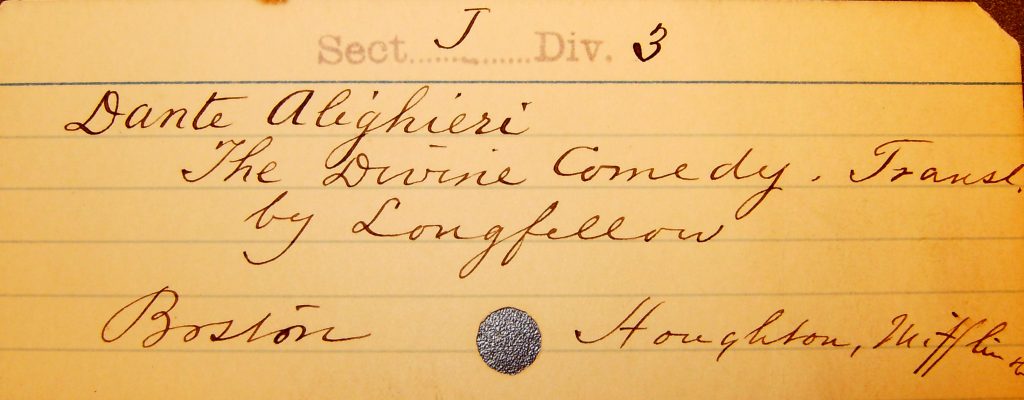 Sect. J Div. 3
Dante Alighieri
The Divine Comedy. Transl.
by Longfellow
Boston Houghton, Mifflin